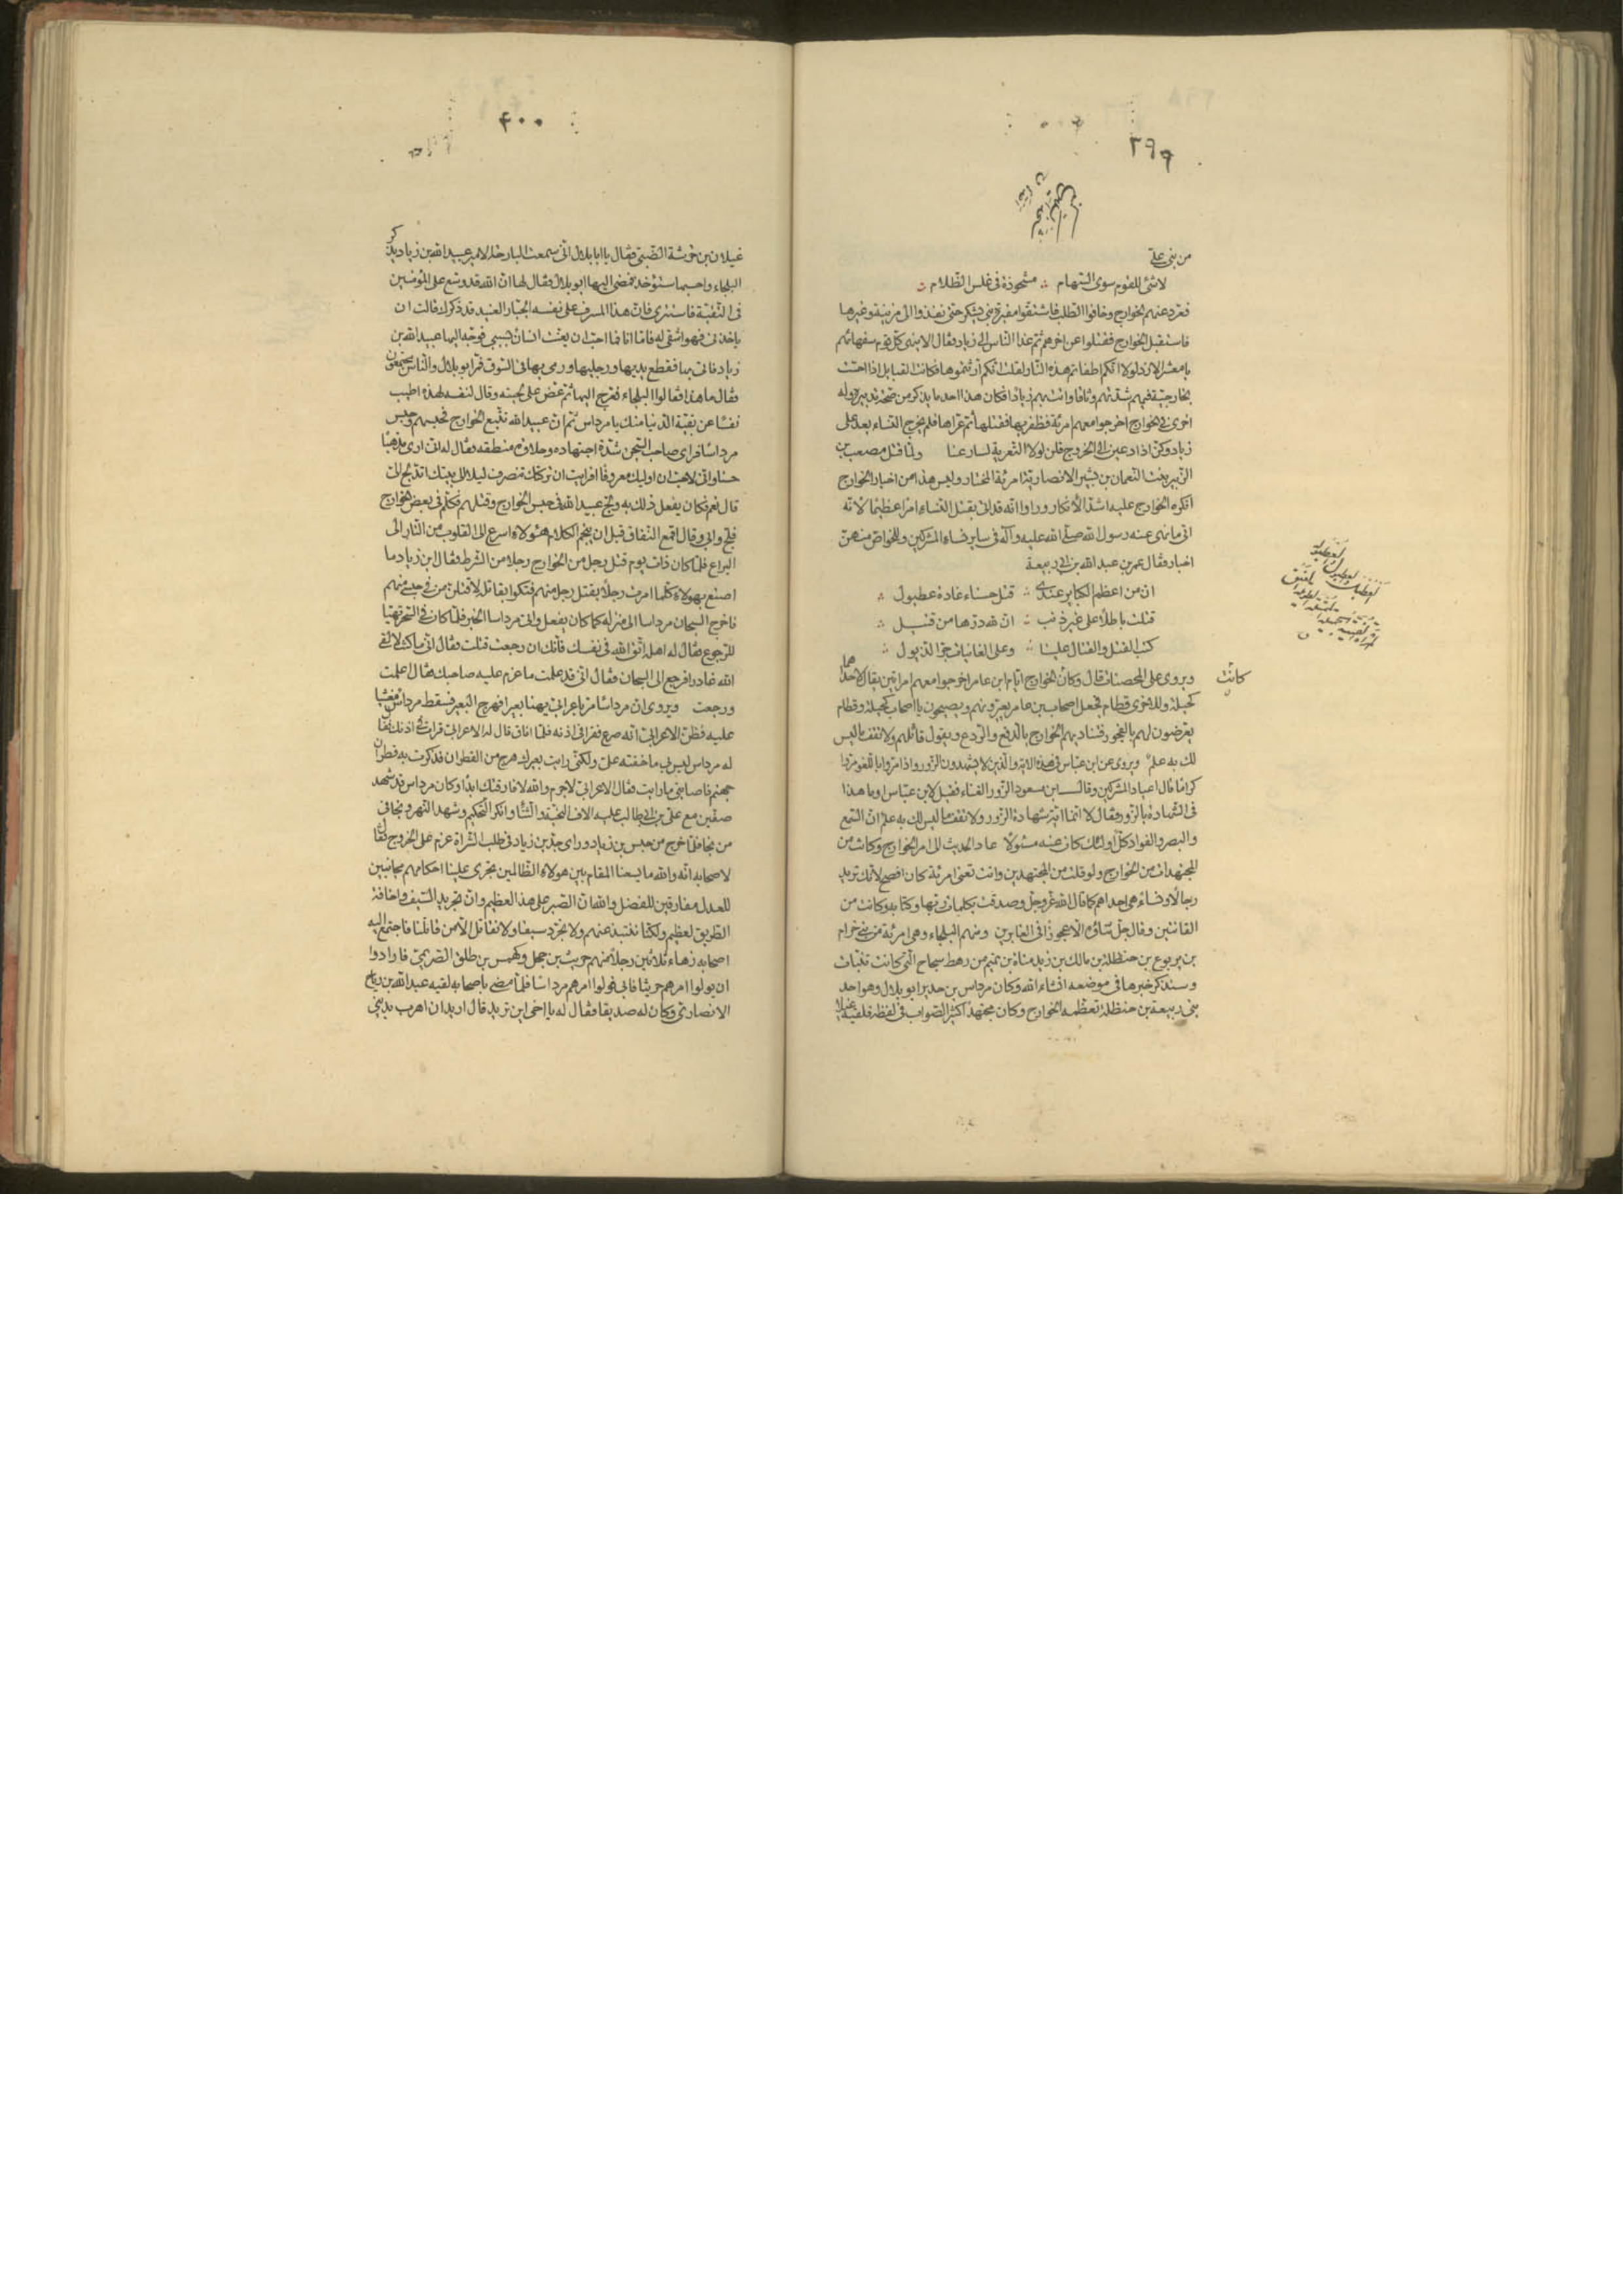 ٣٩٩
من بنى على
لا شئ للقوم سوى السهام ∴ مشحوذة فى غلس الظلام ∴
فعرد عنهم الخوارج وخافوا الطلب فاشتقوا مقبرة بنى يشكر حتى نفذوا الى مزينة وغيرها
فاستقبل الخوارج فقتلوا عن اخرهم ثم غدا الناس الى زياد فقال الا ينهى كل قوم سفهائهم
يا معشر الازد لولا انكم اطفاتم هذه النار لقلت انكم ارثتموها فكانت القبايل اذا احست
بخارجية فيهم شدتهم وثاقا واتت بهم زيادا فكان هذا احد ما يذكر من صحة تدبيره وله
اخرى فى الخوارج اخرجوا معهم امرئة فظفر بها فقتلها ثم عراها فلم يخرج النساء بعد على
زياد وكن اذا دعين الى الخروج قلن لولا التعرية لسارعنا ولما قتل مصعب بن
الزبير بنت النعمان بن بشير الانصارية امرئة المختار وليس هذا من اخبار الخوارج
انكره الخوارج عليه اشد الانكار وراوا انه قد اتى بقتل النساء امرا عظيما لانه
اتى ما نهى عنه رسول الله صلى الله عليه وآله فى ساير نساء المشركين وللخواص منهن
اخبار فقال عمر بن عبد الله بن ابى ربيعة
ان من اعظم الكباير عندى ∴ قتل حسناء غادة عطبول ∴
قتلت باطلا على غير ذنب ∴ ان لله درها من قتيل ∴
كتب القتل والقتال علينا ∴ وعلى الغانيات جر الذيول ∴
ويروى على المحصنات قال وكان الخوارج ايام ابن عامر اخرجوا معهم امراتين يقال لاحداهما
كانت
كحيلة وللاخرى قطام فجعل اصحاب ابن عامر يعيرونهم ويصيحون يا اصحاب كحيلة وقطام
يعرضون لهم بالفجور فتناديهم الخوارج بالدفع والردع ويقول قائلهم ولا تقف ما ليس
لك به علم ويروى عن ابن عباس فى هذه الاية والذين لا يشهدون الزور واذا مروا باللغو مروا
كراما قال اعياد المشركين وقال ابن مسعود الزور الغناء فقيل لابن عباس اوما هذا
فى الشهادة بالزور فقال لا انما اية شهادة الزور ولا تقف ما ليس لك به علم ان السمع
والبصر والفواد كل اولئك كان عنه مسئولا عاد الحديث الى امر الخوارج وكانت من
المجتهدات من الخوارج ولو قلت من المجتهدين وانت تعنى امرئة كان افصح لانك تريد
رجالا ونساء هى احداهم كما قال الله عز وجل وصدقت بكلمات ربها وكتابه وكانت من
القانتين وقال جل ثناؤه الا عجوزا فى الغابرين ومنهم البلجاء وهى امرئة من بنى حرام
بن يربوع بن حنظلة بن مالك بن زيد مناة بن تميم من رهط سجاح التى كانت تنبأت
وسنذكر خبرها فى موضعه انشاء الله وكان مرداس بن حدير ابو بلال وهو احد
بنى ربيعة بن حنظلة تعظمه الخوارج وكان مجتهدا كثير الصواب فى لفظه فلقيه
٤٠٠
غيلان بن خرشة الضبى فقال يا ابا بلال انى سمعت البارحة الامير عبيد الله بن زياد يذكر
البلجاء واحسبها ستؤخذ فمضى اليها ابو بلال فقال لها ان الله قد وسع على المؤمنين
فى التقية فاستترى فان هذا المسرف على نفسه الجبار العنيد قد ذكرك قالت ان
ياخذنى فهو اشقى له فاما انا فما احب ان يعنت انسان بسببى فوجه اليها عبيد الله بن
زياد فاتى بها فقطع يديها ورجليها ورمى بها فى السوق فمر ابو بلال والناس مجتمعون
فقال ما هذا فقالوا البلجاء فعرج اليها ثم عض على لحيته وقال لنفسه لهذه اطيب
نفسا عن بقية الدنيا منك يا مرداس ثم ان عبيد الله تتبع الخوارج فحبسهم وحبس
مرداسا فراى صاحب السجن شدة اجتهاده وحلاوة منطقه فقال له انى ارى مذهبا
حسنا وانى لاحب ان اوليك معروفا افرايت ان تركتك تنصرف ليلا الى بيتك اتدلج الى
قال نعم فكان يفعل ذلك به ولج عبيد الله فى حبس الخوارج وقتلهم فكلم فى بعض الخوارج
فلج وابى وقال اقمع النفاق قبل ان ينجم لكلام هئولاء اسرع الى القلوب من النار الى
اليراع فلما كان ذات يوم قتل رجل من الخوارج رجلا من الشرط فقال ابن زياد ما
اصنع بهولاء كلما امرت رجلا بقتل رجل منهم فتكوا بقاتله لاقتلن من فى حبسى منهم
فاخرج السجان مرداسا الى منزله كما كان يفعل واتى مرداسا الخبر فلما كان فى السحر تهيا
للرجوع فقال له اهله اتق الله فى نفسك فانك ان رجعت قتلت فقال انى ما كنت لالقى
الله غادرا فرجع الى السجان فقال انى قد علمت ما عزم عليه صاحبك فقال اعلمت
ورجعت ويروى ان مرداسا مر باعرابى يهنا بعيرا فهرج البعير فسقط مرداس مغشيا
عليه فظن الاعرابى انه صرع فقرا فى اذنه فلما افاق قال له الاعرابى قرات فى اذنك فقال
له مرداس ليس بى ما خفته على ولكنى رايت بعيرك هرج من القطران فذكرت به قطران
جهنم فاصابنى ما رايت فقال الاعرابى لا جرم والله لا فارقتك ابدا وكان مرداس قد شهد
صفين مع على بن ابى طالب عليه الاف التحية والثنا وانكر التحكيم وشهد النهر ونجا فى
من نجا فلما خرج من حبس بن زياد وراى جد بن زياد فى طلب الشراة عزم على الخروج فقال
لاصحابه انه والله ما يسعنا المقام بين هولاء الظالمين تجرى علينا احكامهم مجانبين
للعدل مفارقين للفضل والله ان الصبر على هذا لعظيم وان تجريد السيف واخافة
الطريق لعظيم ولكنا ننتبذ عنهم ولا نجرد سيفا ولا نقاتل الا من قاتلنا فاجتمع اليه
اصحابه زهاء ثلاثين رجلا منهم حريث بن حجل وكهمس بن طلق الصريمى فارادوا
ان يولوا امرهم حريثا فابى فولوا امرهم مرداسا فلما مضى باصحابه لقيه عبد الله بن رباح
الانصارى وكان له صديقا فقال له يا اخى اين تريد قال اريد ان اهرب بدينى